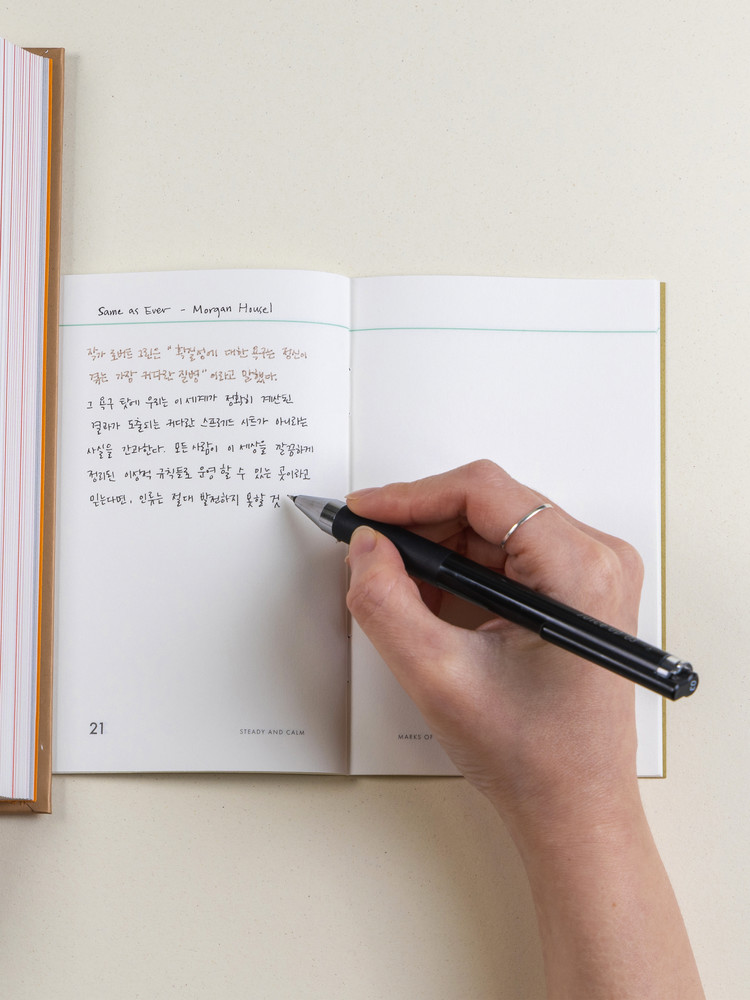 Same as Ever - Morgan Housel
작가 로버트 그린은 "확실성에 대한 욕구는 정신이
겪는 가장 커다란 질병"이라고 말했다.
그 욕구 탓에 우리는 이 세계가 정확히 계산된
결과가 도출되는 커다란 스프레드 시트가 아니라는
사실을 간과한다. 모든 사람이 이 세상을 깔끔하게
정리된 이상적 규칙들로 운영할 수 있는 곳이라고
믿는다면, 인류는 절대 발전하지 못할 것
21
STEADY AND CALM
MARKS OF